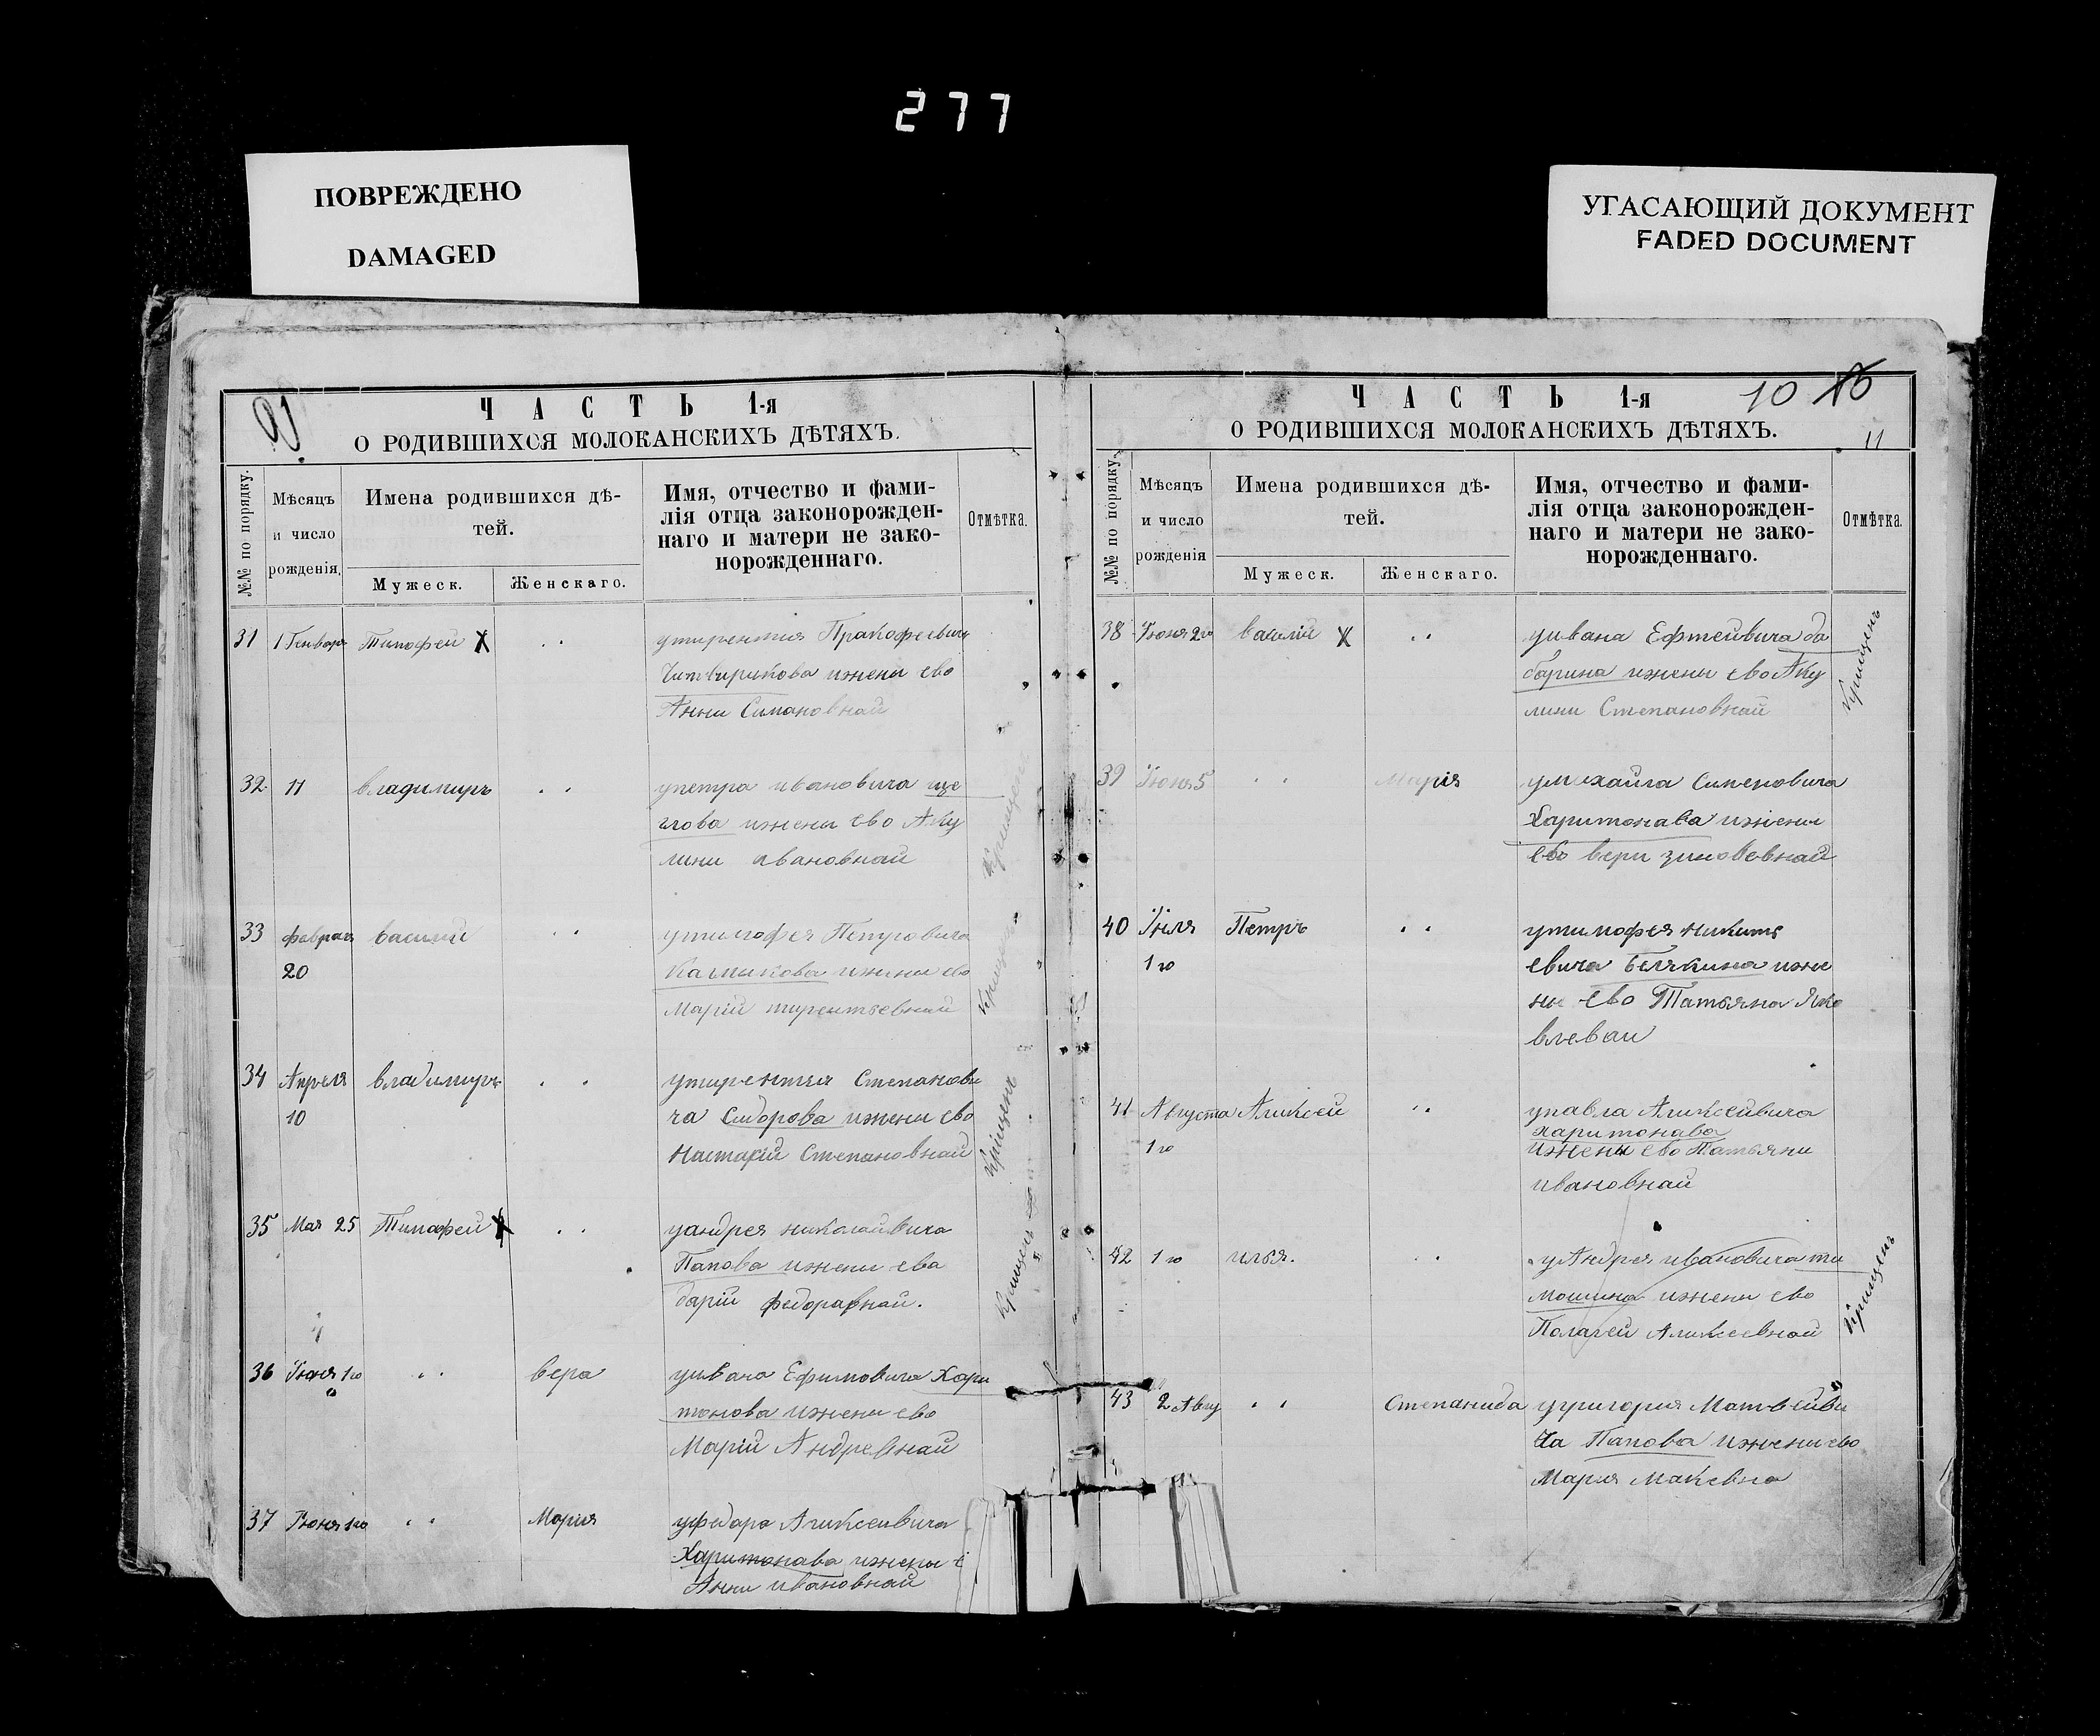 277
ПОВРЕЖДЕНО
DAMAGED
УГАСАЮЩИЙ ДОКУМЕНТ
FADED DOCUMENT
ЧАСТЬ 1-я
О РОДИВШИХСЯ МОЛОКАНСКИХЪ ДѢТЯХЪ.
№№ по порядку.
Мѣсяцъ
и число
рожденія.
Имена родившихся дѣ-
тей.
Мужеск.
Женскаго.
Имя, отчество и фами-
лія отца законорожден-
наго и матери не зако-
норожденнаго.
Отмѣтка.
31 1 Генваря Тимофей X
утирентия Пракофьевича
Читвирикова ижени ево
Анни Симановнай
32 11 владимиръ
упетра ивановича ще
глова ижени ево Аку
лини ивановнай
Крищенъ
33 февраля василий
20
утимофея Петровича
Калмикова ижини ево
Марій тирентьевнай
Крищенъ
34 Апреля владимиръ
10
утирентия Степанови
ча Сидорова ижени ево
Настасій Степановнай
Крищенъ
35 Мая 25 Тимофей X
уандрея николаивича
Папова ижени ева
дарій федоравнай.
Крищенъ
36 Июня 1го вера
уивана Ефимовича Хари
тонова ижени ево
Марій Андревнай
37 Июня 1го Мария
уфедора Аликсеивича
Харитонава ижены е
Анни ивановнай
ЧАСТЬ 1-я
10 16
О РОДИВШИХСЯ МОЛОКАНСКИХЪ ДѢТЯХЪ.
11
№№ по порядку.
Мѣсяцъ
и число
рожденія
Имена родившихся дѣ-
тей.
Мужеск.
Женскаго.
Имя, отчество и фами-
лія отца законорожден-
наго и матери не зако-
норожденнаго.
Отмѣтка.
38 Июня 2го василій X
уивана Ефтейвича ба
барина ижени ево Аку
лини Степановнай
Крищенъ
39 Июня 5 Марія
умихайла Сименовича
Харитонава ижени
ево вери зиновевнай
40 Июля Петръ
1го
утимофея Никите
евича Белякина иже
ни ево Татьяна Яко
влеваи
41 Августа Аликсей
1го
упавла Аликсейвича
харитонава
ижени ево Татьяни
ивановнай
42 1го илья.
уАндрея ивановича ти
мошина ижени ево
Палагей Аликсевнай
Крищенъ
43 2 Авгу Степанида
угригория Матвейви
ча Папова ижени ево
Мария Макевна